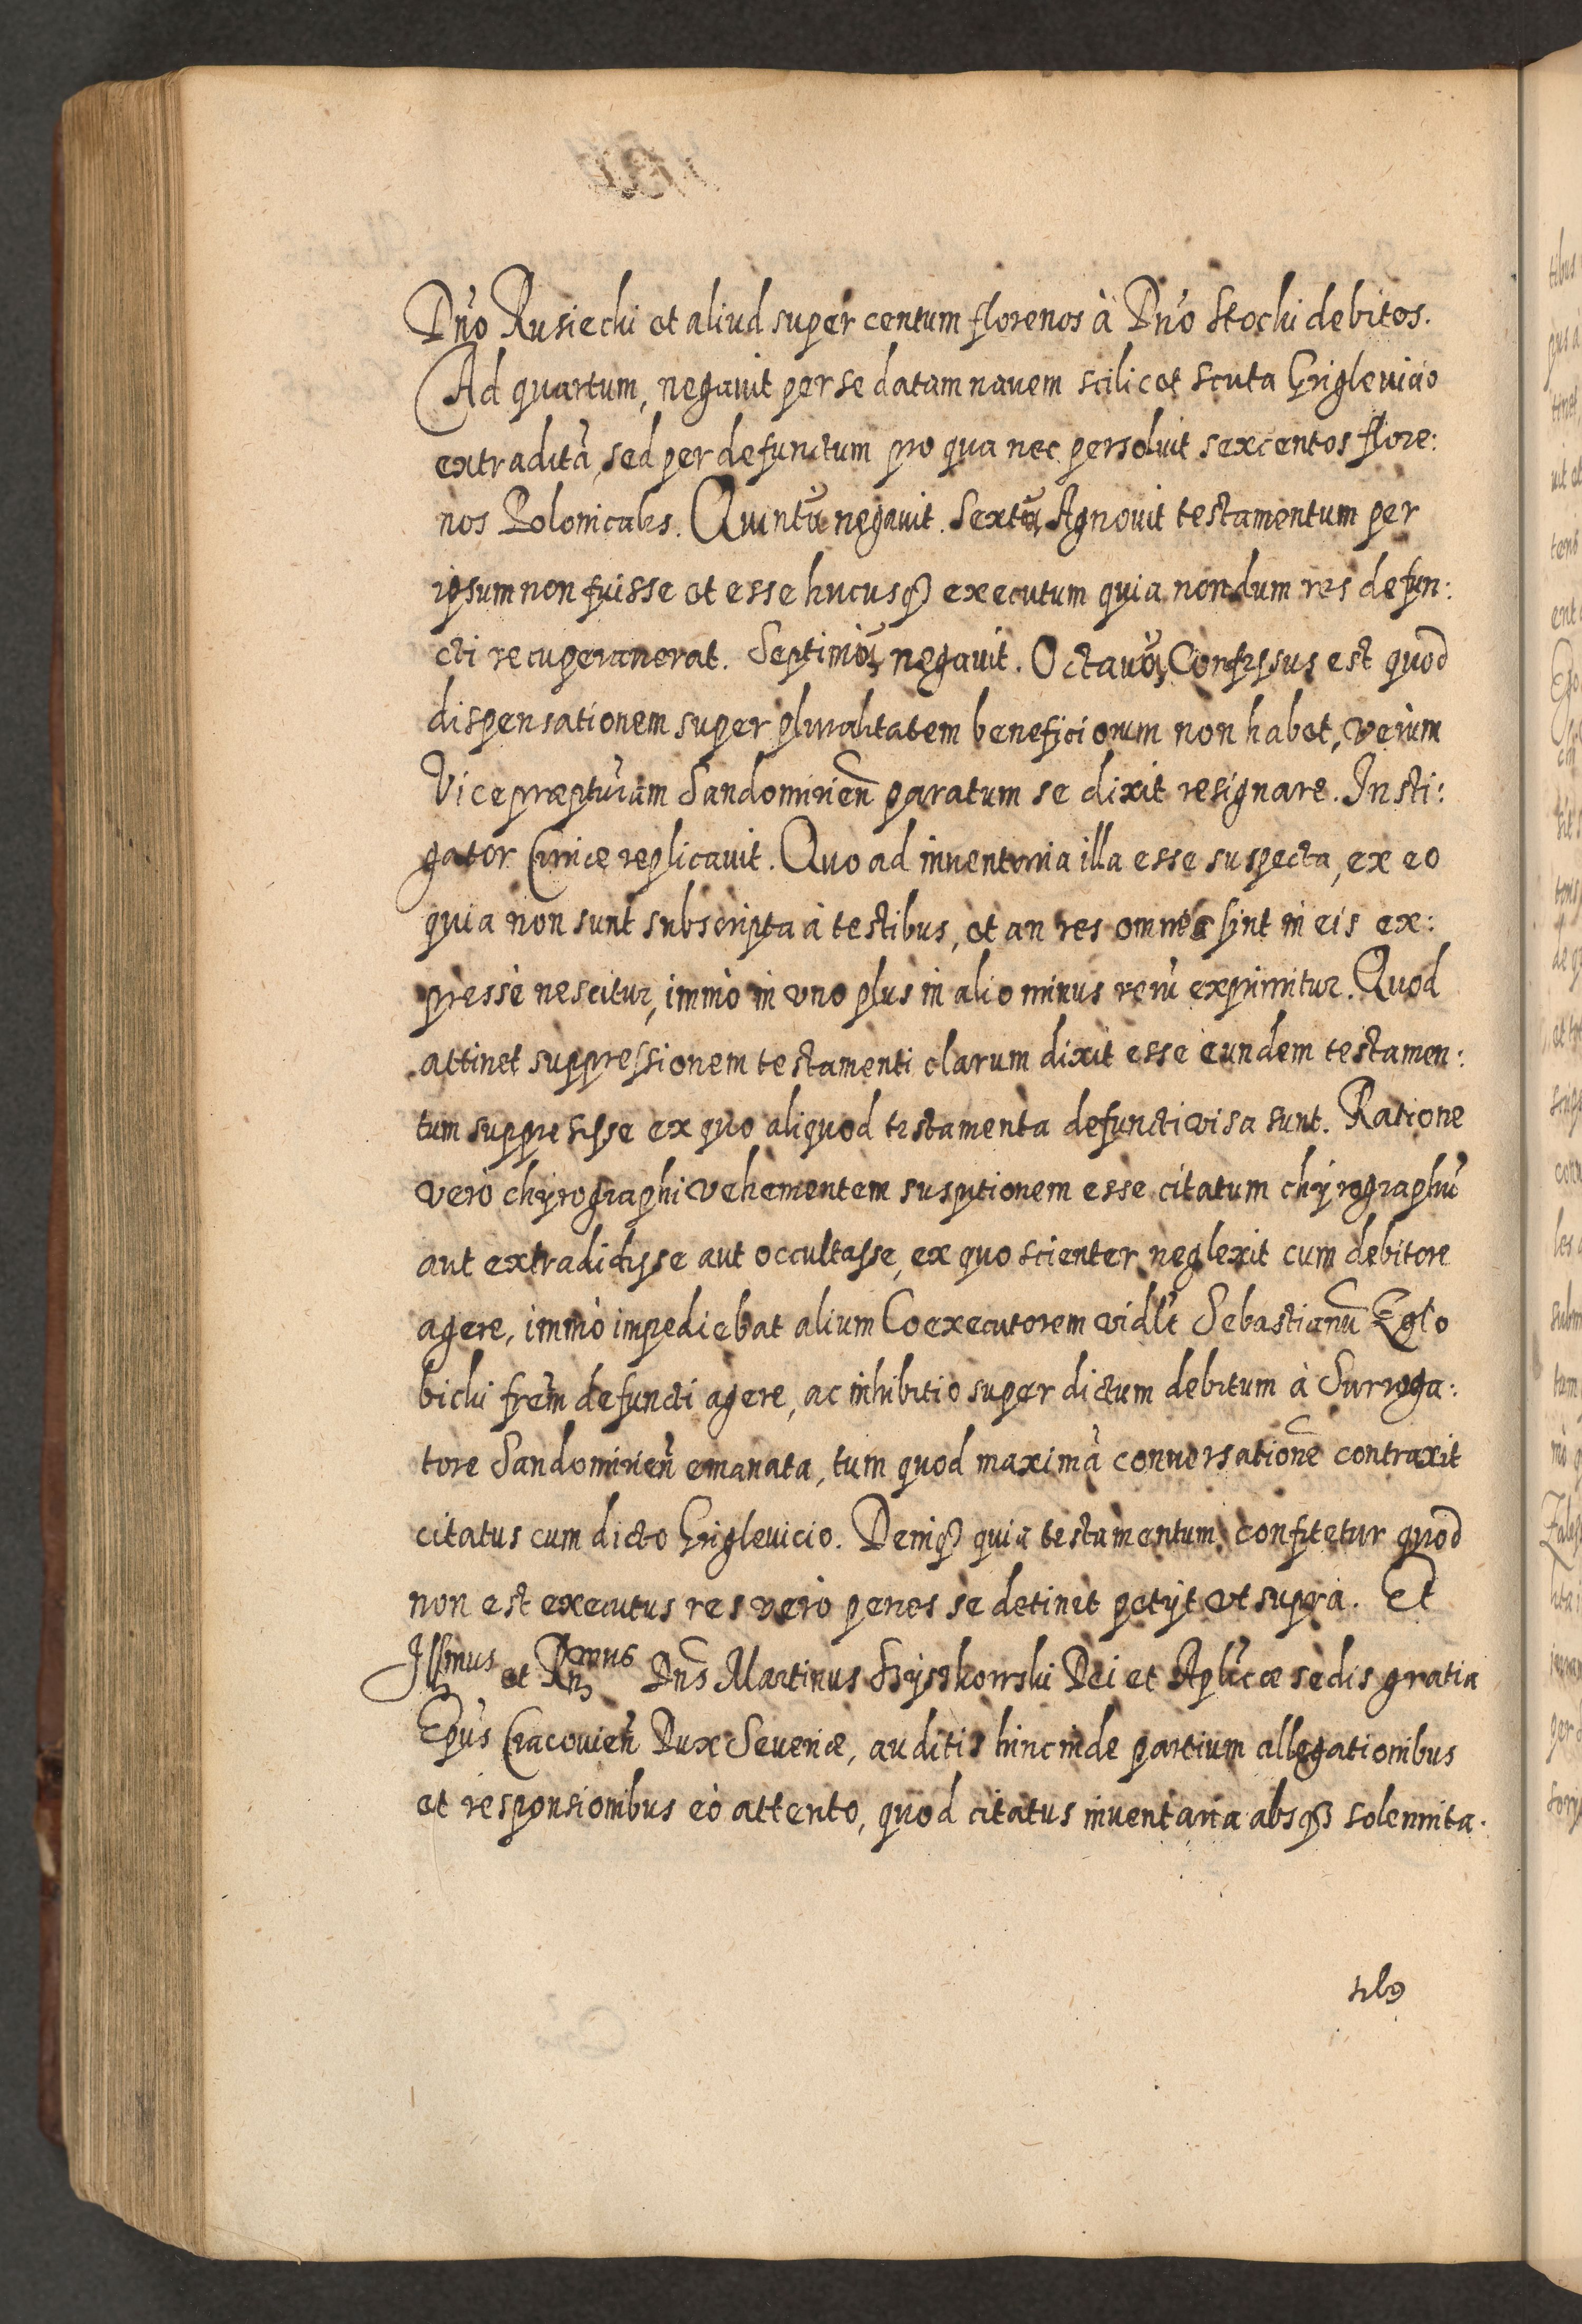 Dño Rusiechi et aliud super centum florenos à Dño Stochi debitos.
Ad quartum, negavit per se datam navem scilicet scuta Griglevicio
extraditã, sed per defunctum pro qua nec persolvit sexcentos flore:
nos Polonicales. Quintũ negavit. Sextũ, Agnovit testamentum per
ipsum non fuisse et esse hucusqꝫ executum quia nondum res defun:
cti recuperaverat. Septimũ, negavit. Octavũ, Confessus est quod
dispensationem super pluralitatem beneficiorum non habet, verùm
Vicepræpturam Sandomirieñ paratum se dixit resignare. Insti:
gator Curiæ replicavit. Quo ad inventaria illa esse suspecta, ex eo
quia non sunt subscripta à testibus, et an res omnes sint in eis ex:
pressè nescitur, immò in uno plus in alio minus rerũ exprimitur. Quod
attinet suppressionem testamenti clarum dixit esse eundem testamen:
tum suppressisse ex quo aliquod testamenta defuncti visa sunt. Ratione
verò chyrographi vehementem susptionem esse citatum chyrographũ
aut extradidisse aut occultasse, ex quo scienter neglexit cum debitore
agere, immò impediebat alium Coexecutorem vidlt Sebastianũ Zglo
bichi frem defuncti agere, ac inhibitio super dictum debitum à Surroga:
tore Sandomirieñ emanata, tum quod maximã conversationẽ contraxit
citatus cum dicto Griglevicio. Deniqꝫ quia testamentum confitetur quod
non est executus res verò penes se detinet petijt ut supra. Et
Illmus et Rndmus Dns Martinus Szyszkowski Dei et Aplicæ sedis gratia
Epus Cracovieñ Dux Severiæ, auditis hinc inde partium allegationibus
et responsionibus eò attento, quod citatus inventaria absqꝫ solennita.
tibꝰ